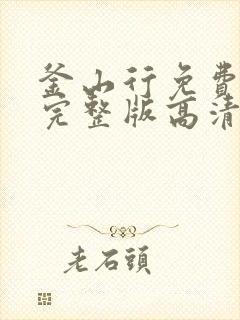 釜山行免費
完整版高清
老石頭